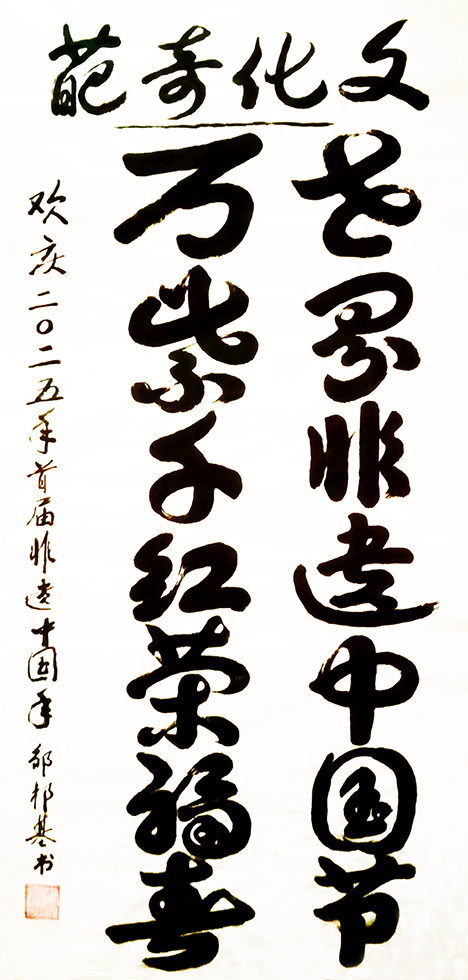 文化奇葩
世界非遗中国节
万紫千红荣福春
欢庆二〇二五年首届非遗中国年 邹邦基书